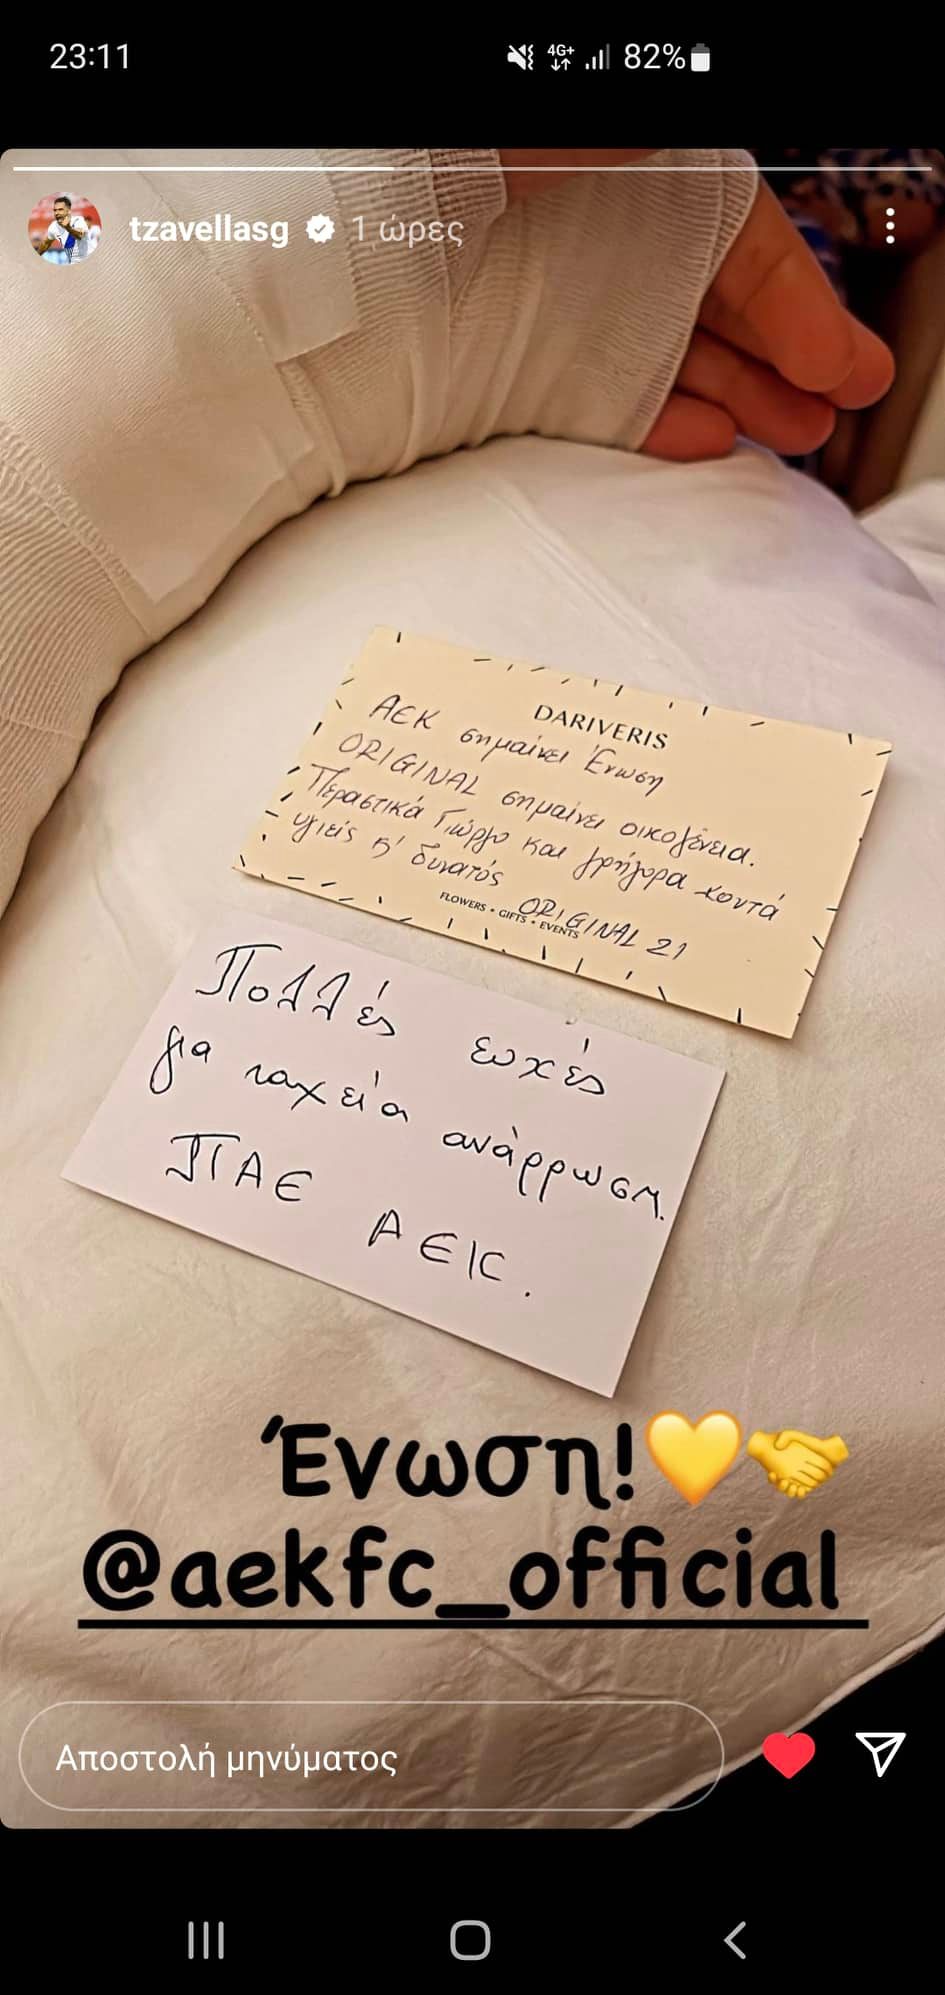 23:11
4G+
82%
tzavellasg
1 ώρες
DARIVERIS
ΑΕΚ σημαίνει Ένωση
ORIGINAL σημαίνει οικογένεια.
Περαστικά Γιώργο και γρήγορα κοντά
υγιείς κ' δυνατός
ORIGINAL 21
FLOWERS • GIFTS • EVENTS
Πολλές ευχές
για ταχεία ανάρρωση.
ΠΑΕ ΑΕΚ.
Ένωση!💛🤝
@aekfc_official
Αποστολή μηνύματος